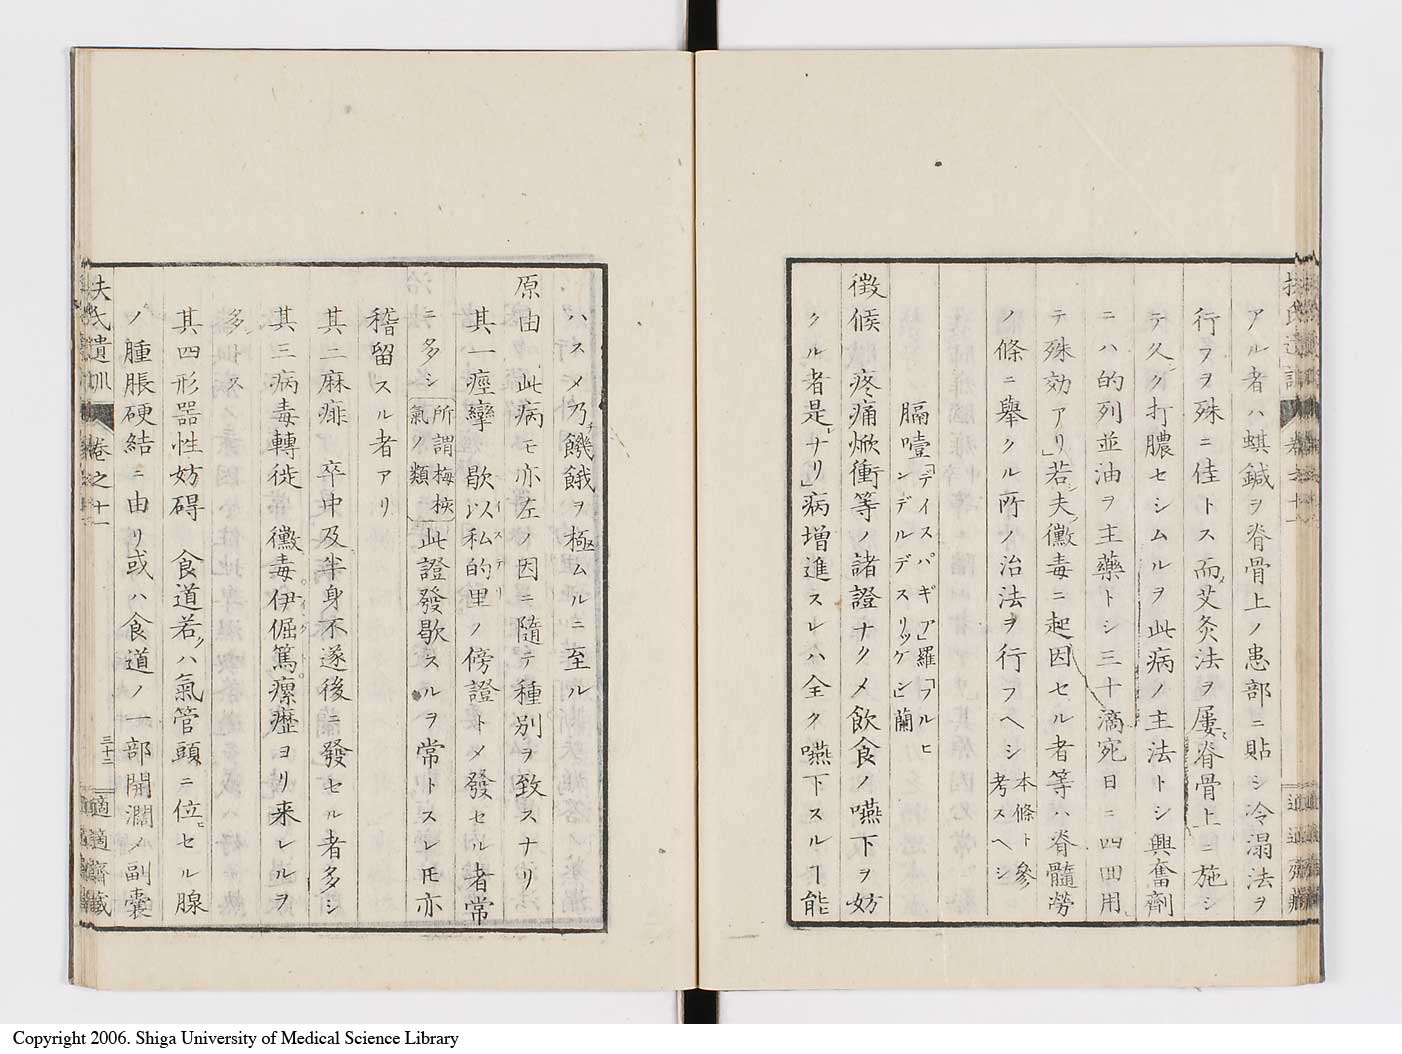 アル者ハ蜞鍼ヲ脊骨上ノ患部ニ貼シ冷溻法ヲ
行フヲ殊ニ佳トス而艾灸法ヲ屢脊骨上ニ施シ
テ久ク打膿セシムルヲ此病ノ主法トシ興奮劑
ニハ的列並油ヲ主藥トシ三十滴宛日ニ四回用
テ殊効アリ」若夫黴毒ニ起因セル者等ハ脊髓勞
ノ條ニ舉クル所ノ治法ヲ行フヘシ本條ト參考スヘシ
膈噎「ディスパギア」羅「フルヒンデルデスリッケン」蘭
徴候 疼痛焮衝等ノ諸證ナクメ飲食ノ嚥下ヲ妨
クル者是ナリ」病増進スレハ全ク嚥下スルヿ能
ハスメ乃饑餓ヲ極ムルニ至ル
原由 此病モ亦左ノ因ニ隨テ種別ヲ致スナリ
其一痙攣 歇以私的里ノ傍證トメ發セル者常
ニ多シ所謂梅核氣ノ類此證發歇スルヲ常トスレ𪜈亦
稽留スル者アリ
其二麻痺 卒中及半身不遂後ニ發セル者多シ
其三病毒轉徙 黴毒伊倔篤瘰癧ヨリ来レルヲ
多シス
其四形器性妨碍 食道若ハ氣管頭ニ位セル腺
ノ腫脹硬結ニ由リ或ハ食道ノ一部開濶メ副囊
扶氏遺訓 卷之十一 三十二 適適齋藏
Copyright 2006. Shiga University of Medical Science Library